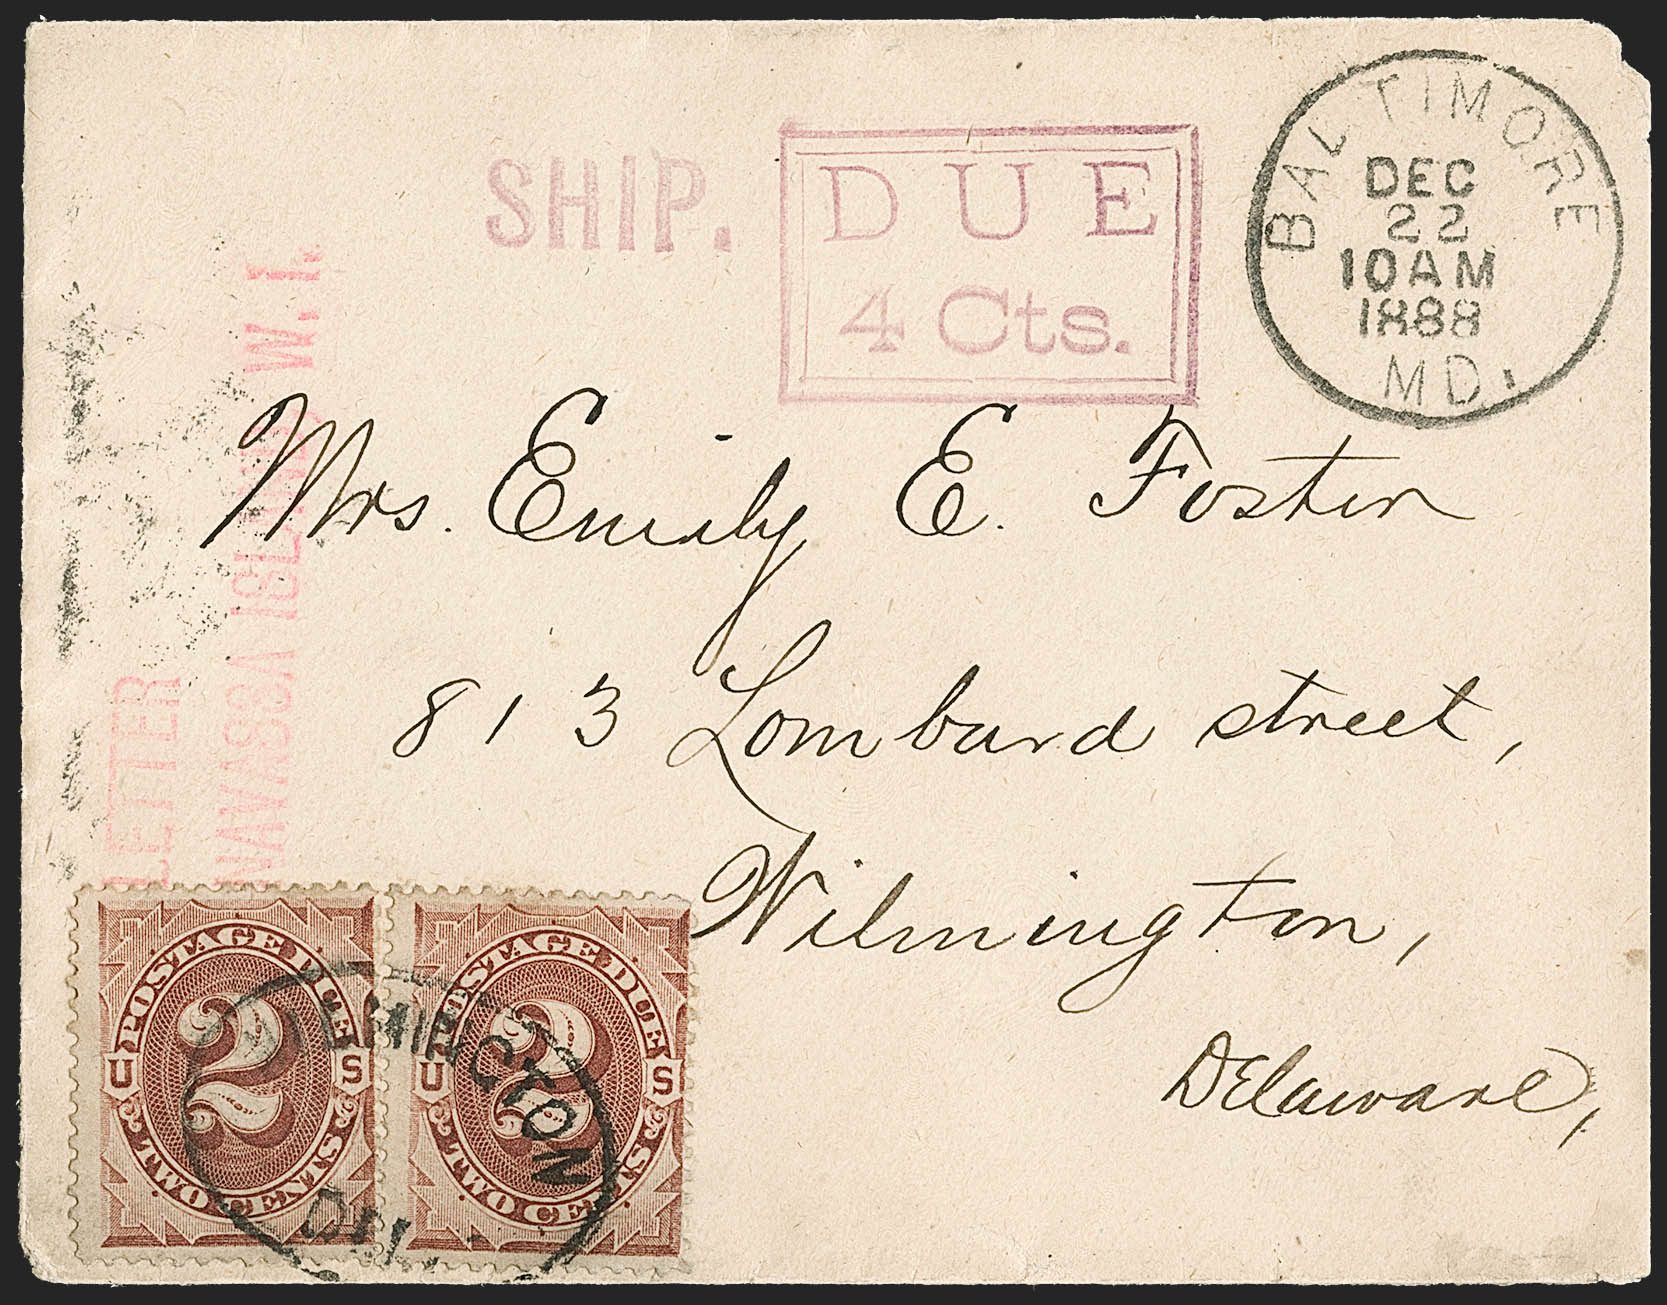 SHIP.
DUE
4 Cts.
BALTIMORE
DEC
22
10AM
1888
MD.
LETTER
NAVASSA ISLAND W. I.
Mrs. Emily E. Foster
813 Lombard street,
Wilmington,
Delaware,
POSTAGE DUE
U 2 S
TWO CENTS
POSTAGE DUE
U 2 S
TWO CENTS
WILMINGTON
DEL.